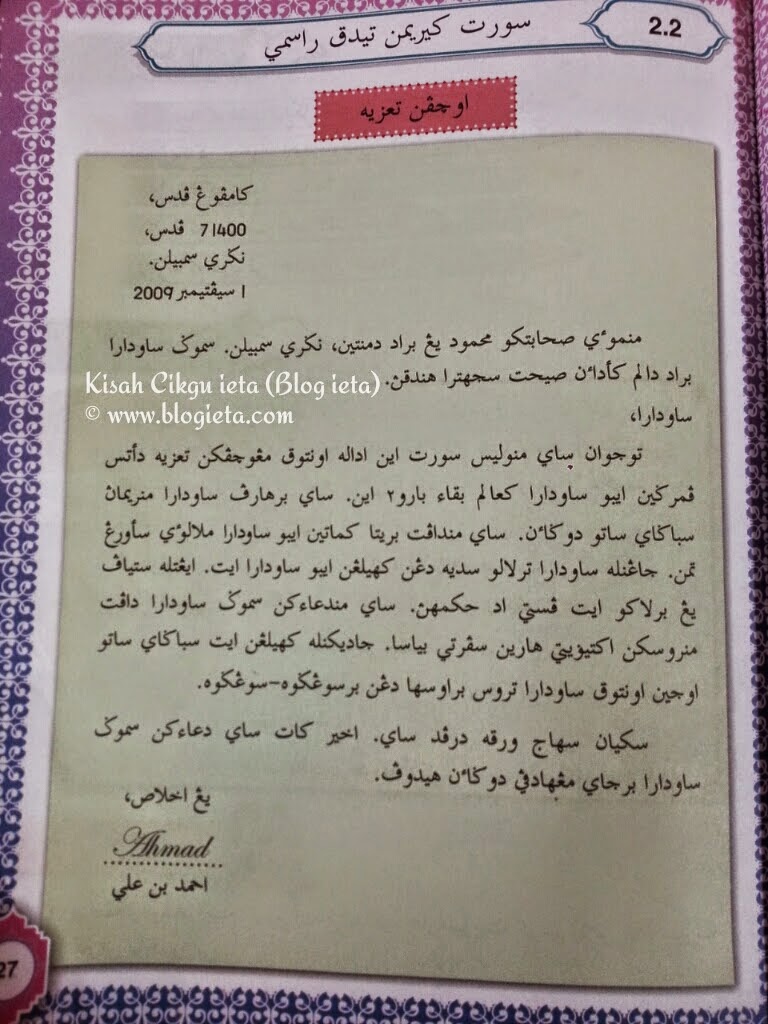 2.2
سورت كيريمن تيدق راسمي
اوچڤن تعزيه
كامڤوڠ ڤدس،
71400 ڤدس،
نݢري سمبيلن.
1 سيڤتيمبر 2009
منموءي صحابتكو محمود يڠ براد دمنتين، نݢري سمبيلن. سموݢ ساودارا
براد دالم كأداءن صيحت سجهترا هندقڽ.
ساودارا،
توجوان ساي منوليس سورت اين اداله اونتوق مڠوچڤكن تعزيه دأتس
ڤمرݢين ايبو ساودارا كعالم بقاء بارو٢ اين. ساي برهارڤ ساودارا منريماڽ
سباݢاي ساتو دوݢاءن. ساي منداڤت بريتا كماتين ايبو ساودارا ملالوءي سأورڠ
تمن. جاڠنله ساودارا ترلالو سديه دڠن كهيلڠن ايبو ساودارا ايت. ايڠتله ستياڤ
يڠ برلاكو ايت ڤستي اد حكمهڽ. ساي مندعاءكن سموݢ ساودارا داڤت
منروسكن اكتيۏيتي هارين سڤرتي بياسا. جاديكنله كهيلڠن ايت سباݢاي ساتو
اوجين اونتوق ساودارا تروس براوسها دڠن برسوڠݢوه-سوڠݢوه.
سكيان سهاج ورقه درڤد ساي. اخير كات ساي دعاءكن سموݢ
ساودارا برجاي مڠهادڤي دوݢاءن هيدوڤ.
يڠ اخلاص،
Ahmad
احمد بن علي
27
Kisah Cikgu ieta (Blog ieta)
© www.blogieta.com